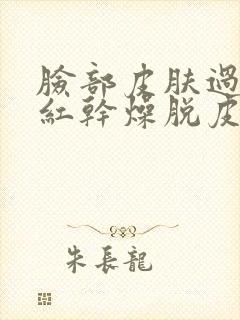 臉部皮膚過
紅幹燥脫皮
朱長龍